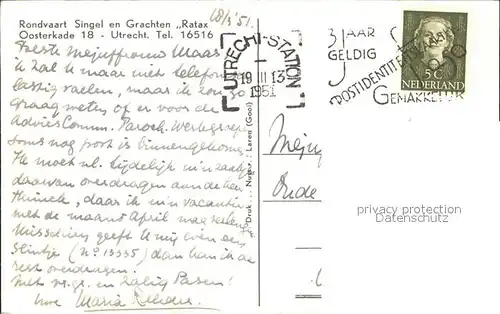 Rondvaart Singel en Grachten „Ratax
Oosterkade 18 - Utrecht. Tel. 16516
18/3 '51.
Beste Mejuffrouw Maas
ik zal U maar niet telefonisch
lastig vallen, maar ik zou zo
graag weten of er voor de
Advies Comm. Paroch. Werkgroep
soms nog post is binnengekomen.
Ik moet nl. tijdelijk m'n zaken
daarvan overdragen aan de heer
daar ik m'n vacantie
met de maand April
Misschien geeft U mij even een
seintje (No 13335) dan kan ik de
rest overdragen.
Met vr. gr. en Zalig Pasen!
Uwe Maria
Druk .. Nugas : Laren (Gooi)
UTRECHT-STATION
19 III 13
1951
3 JAAR
GELDIG
POSTIDENTITEITS
GEMAKKELIJK
5C
NEDERLAND
Mej
Oude
privacy protection
Datenschutz